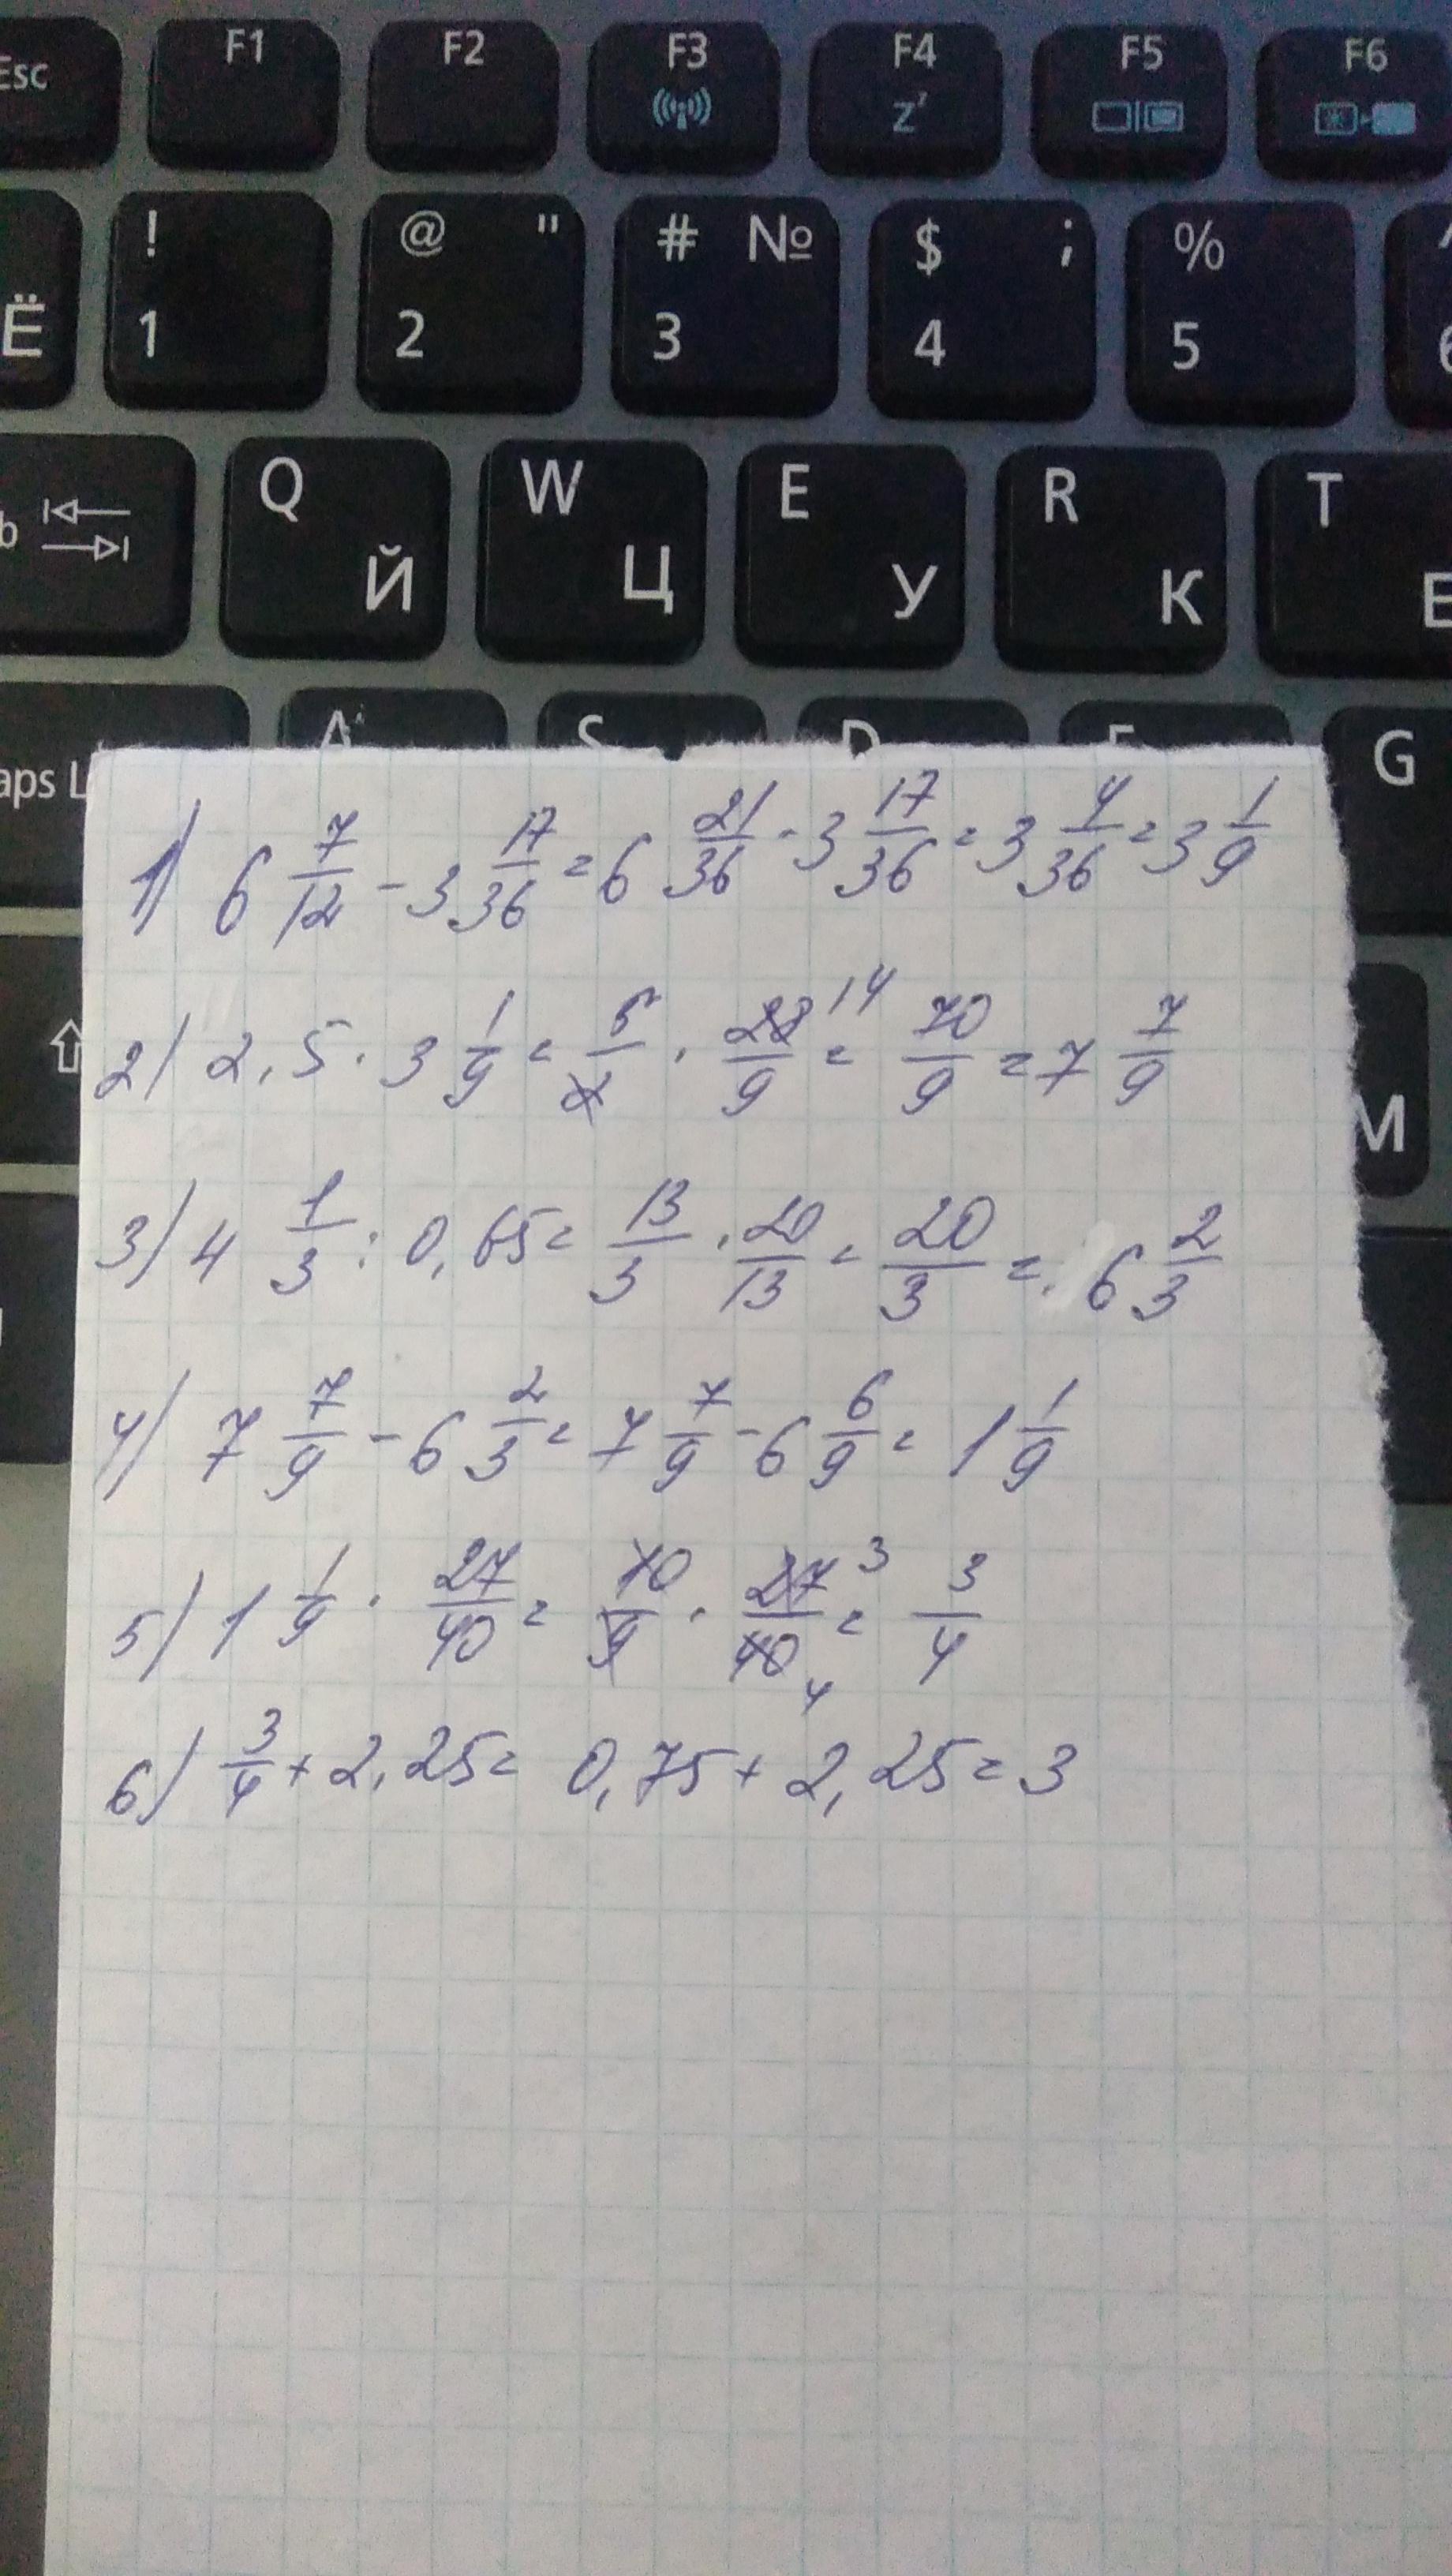 Esc F1 F2 F3 F4 zᶻ F5 F6
Ё ! 1 @ " 2 # № 3 $ ; 4 % 5
b Q Й W Ц E У R К T Е
aps L A S D F G
М
1) 6 7/12 - 3 17/36 = 6 21/36 - 3 17/36 = 3 4/36 = 3 1/9
2) 2,5 · 3 1/9 = 5/2 · 28/9 14 = 70/9 = 7 7/9
3) 4 1/3 : 0,65 = 13/3 · 20/13 = 20/3 = 6 2/3
4) 7 7/9 - 6 2/3 = 7 7/9 - 6 6/9 = 1 1/9
5) 1 1/9 · 27/40 = 10/9 · 27/40 3 4 = 3/4
6) 3/4 + 2,25 = 0,75 + 2,25 = 3